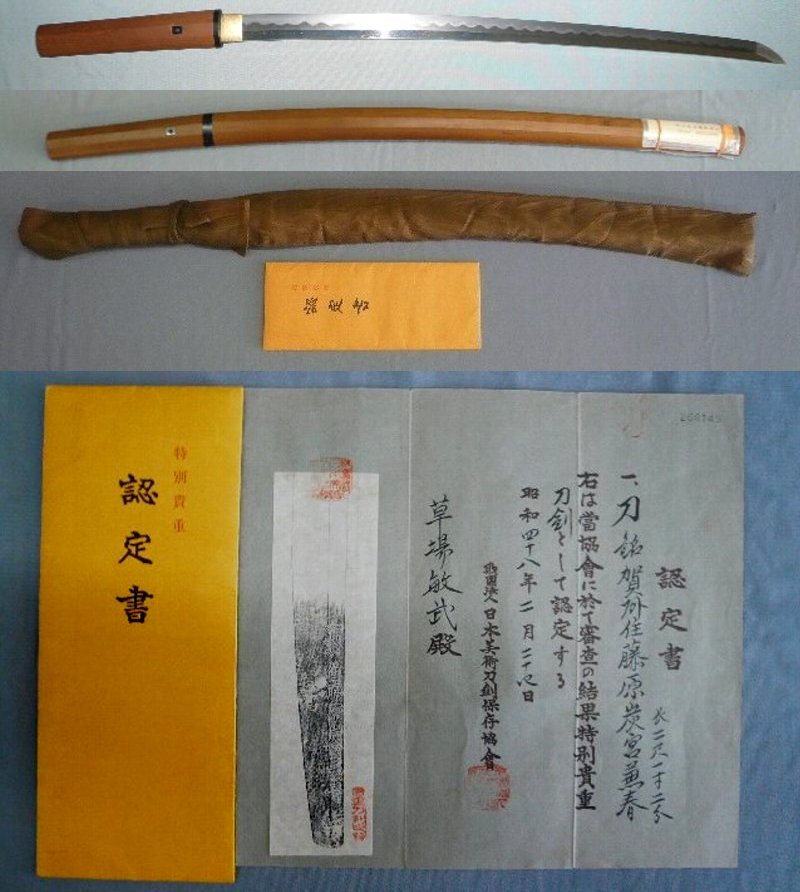 特別貴重
認定書
特別貴重
認定書
認定書
一、刀 銘 賀州住藤原炭宮兼春
長二尺一寸二分
右は當協會に於て審査の結果特別貴重
刀剣として認定する
昭和四十八年二月二十八日
財団法人 日本美術刀剣保存協會
草場敏武殿